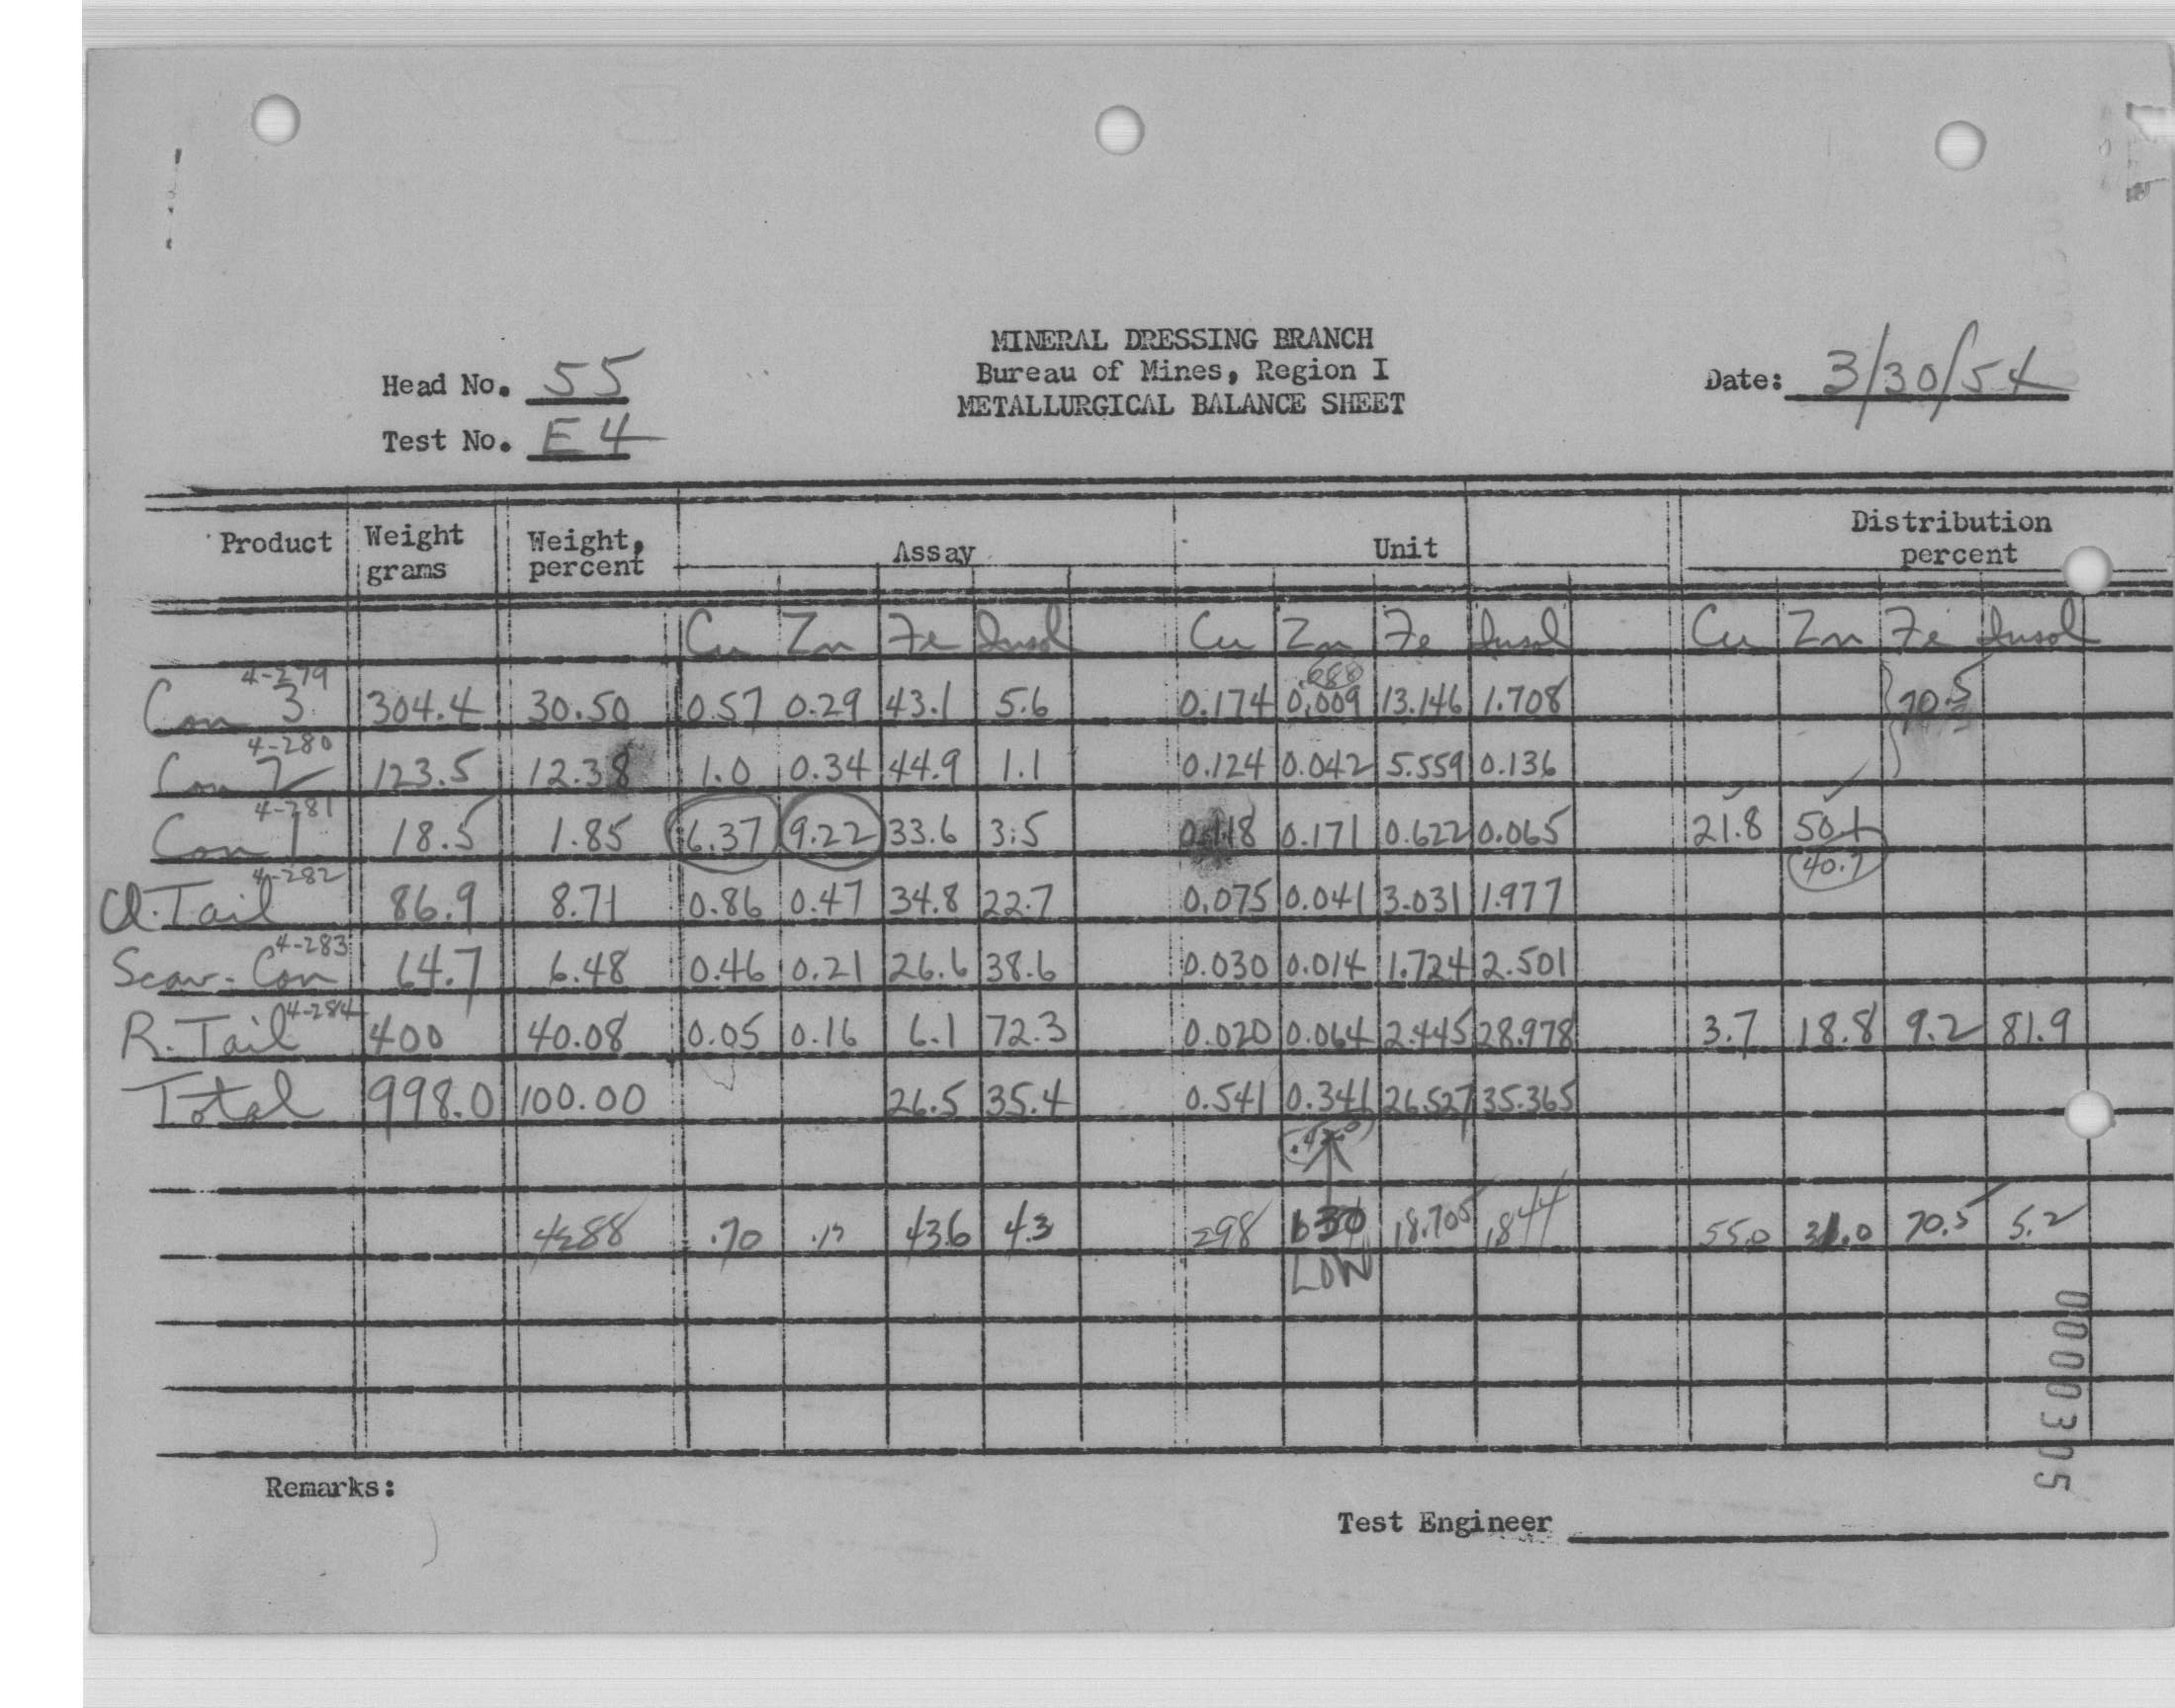 MINERAL DRESSING BRANCH
Head No. 55 Bureau of Mines, Region I Date: 3/30/54
Test No. E4 METALLURGICAL BALANCE SHEET
Product Weight grams Weight, percent Assay Unit Distribution percent
Cu Zn Fe Insol Cu Zn Fe Insol Cu Zn Fe Insol
4-279 .088
Con 3 304.4 30.50 0.57 0.29 43.1 5.6 0.174 0.009 13.146 1.708 70.5
4-280
Con 2 123.5 12.38 1.0 0.34 44.9 1.1 0.124 0.042 5.559 0.136
4-281
Con 1 18.5 1.85 6.37 9.22 33.6 3.5 0.118 0.171 0.622 0.065 21.8 50.1
40.7
4-282
Cl. Tail 86.9 8.71 0.86 0.47 34.8 22.7 0.075 0.041 3.031 1.977
4-283
Scav. Con 64.7 6.48 0.46 0.21 26.6 38.6 0.030 0.014 1.724 2.501
4-284
R. Tail 400 40.08 0.05 0.16 6.1 72.3 0.020 0.064 2.445 28.978 3.7 18.8 9.2 81.9
Total 998.0 100.00 26.5 35.4 0.541 0.341 26.527 35.365
4288 .70 43.6 4.3 298 18.705 1.844 55.0 31.0 70.5 5.2
LOW
Remarks:
Test Engineer
0000305